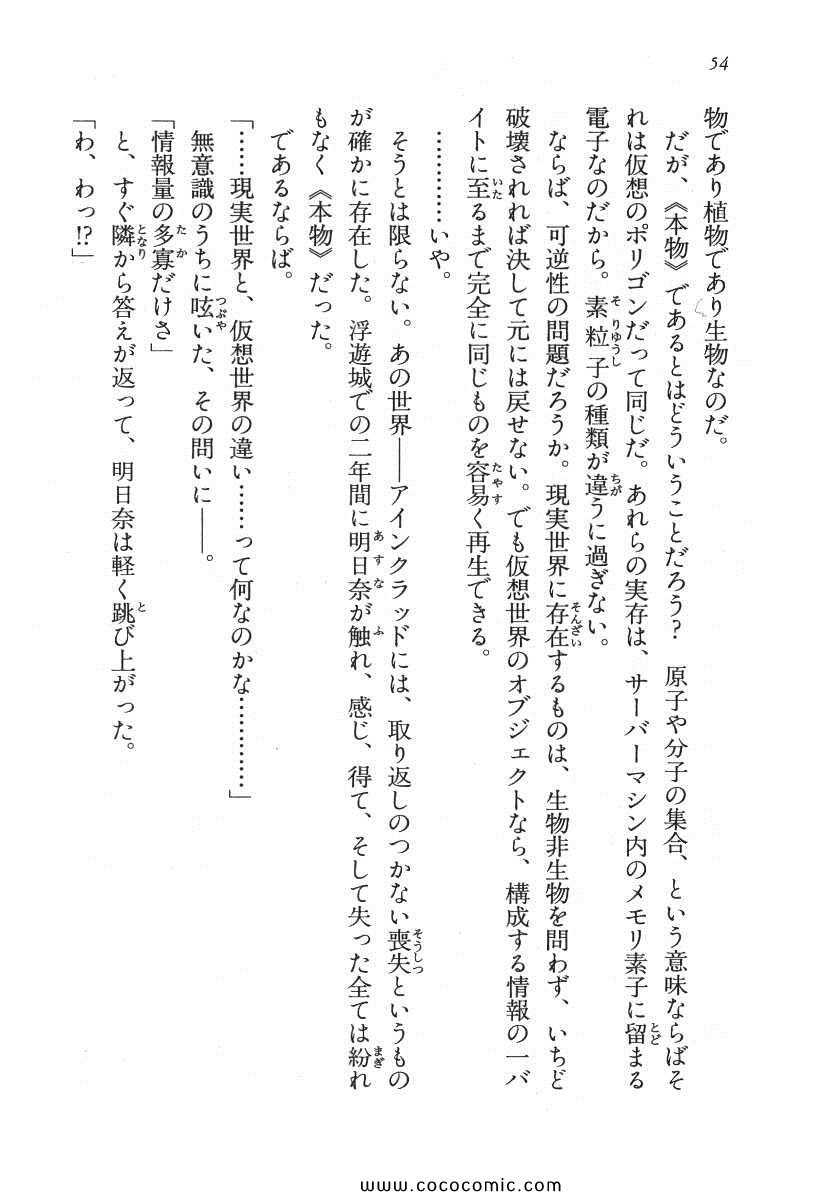 54
物であり植物であり生物なのだ。
だが、《本物》であるとはどういうことだろう? 原子や分子の集合、という意味ならばそ
れは仮想のポリゴンだって同じだ。あれらの実存は、サーバーマシン内のメモリ素子に留まる
電子なのだから。素粒子の種類が違うに過ぎない。
ならば、可逆性の問題だろうか。現実世界に存在するものは、生物非生物を問わず、いちど
破壊されれば決して元には戻せない。でも仮想世界のオブジェクトなら、構成する情報の一バ
イトに至るまで完全に同じものを容易く再生できる。
…………いや。
そうとは限らない。あの世界――アインクラッドには、取り返しのつかない喪失というもの
が確かに存在した。浮遊城での二年間に明日奈が触れ、感じ、得て、そして失った全ては紛れ
もなく《本物》だった。
であるならば。
「……現実世界と、仮想世界の違い……って何なのかな…………」
無意識のうちに呟いた、その問いに――。
「情報量の多寡だけさ」
と、すぐ隣から答えが返って、明日奈は軽く跳び上がった。
「わ、わっ!?」
www.cococomic.com/